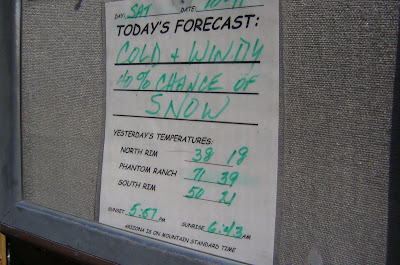 DAY: SAT DATE:
TODAY'S FORECAST:
COLD + WINDY
40% CHANCE OF
SNOW
YESTERDAY'S TEMPERATURES:
NORTH RIM 38 18
PHANTOM RANCH 71 39
SOUTH RIM 50 21
SUNSET 5:57 PM SUNRISE 6:43 AM
ARIZONA IS ON MOUNTAIN STANDARD TIME